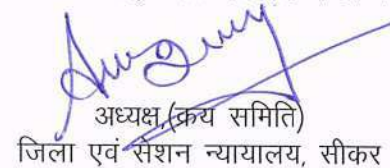 अध्यक्ष,(क्रय समिति)
जिला एवं सैशन न्यायालय, सीकर